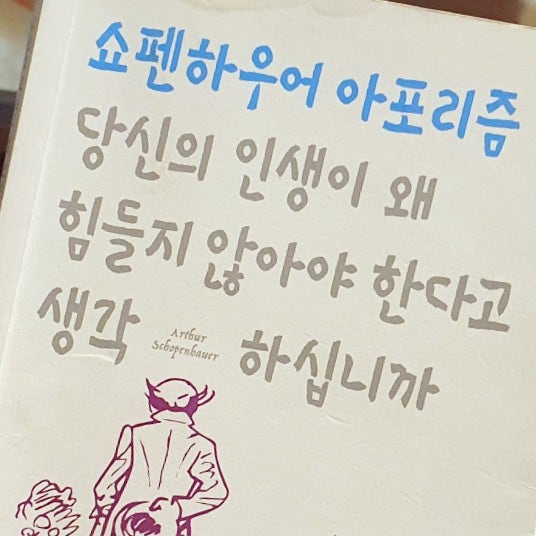 쇼펜하우어 아포리즘
당신의 인생이 왜
힘들지 않아야 한다고
생각 하십니까
Arthur
Schopenhauer